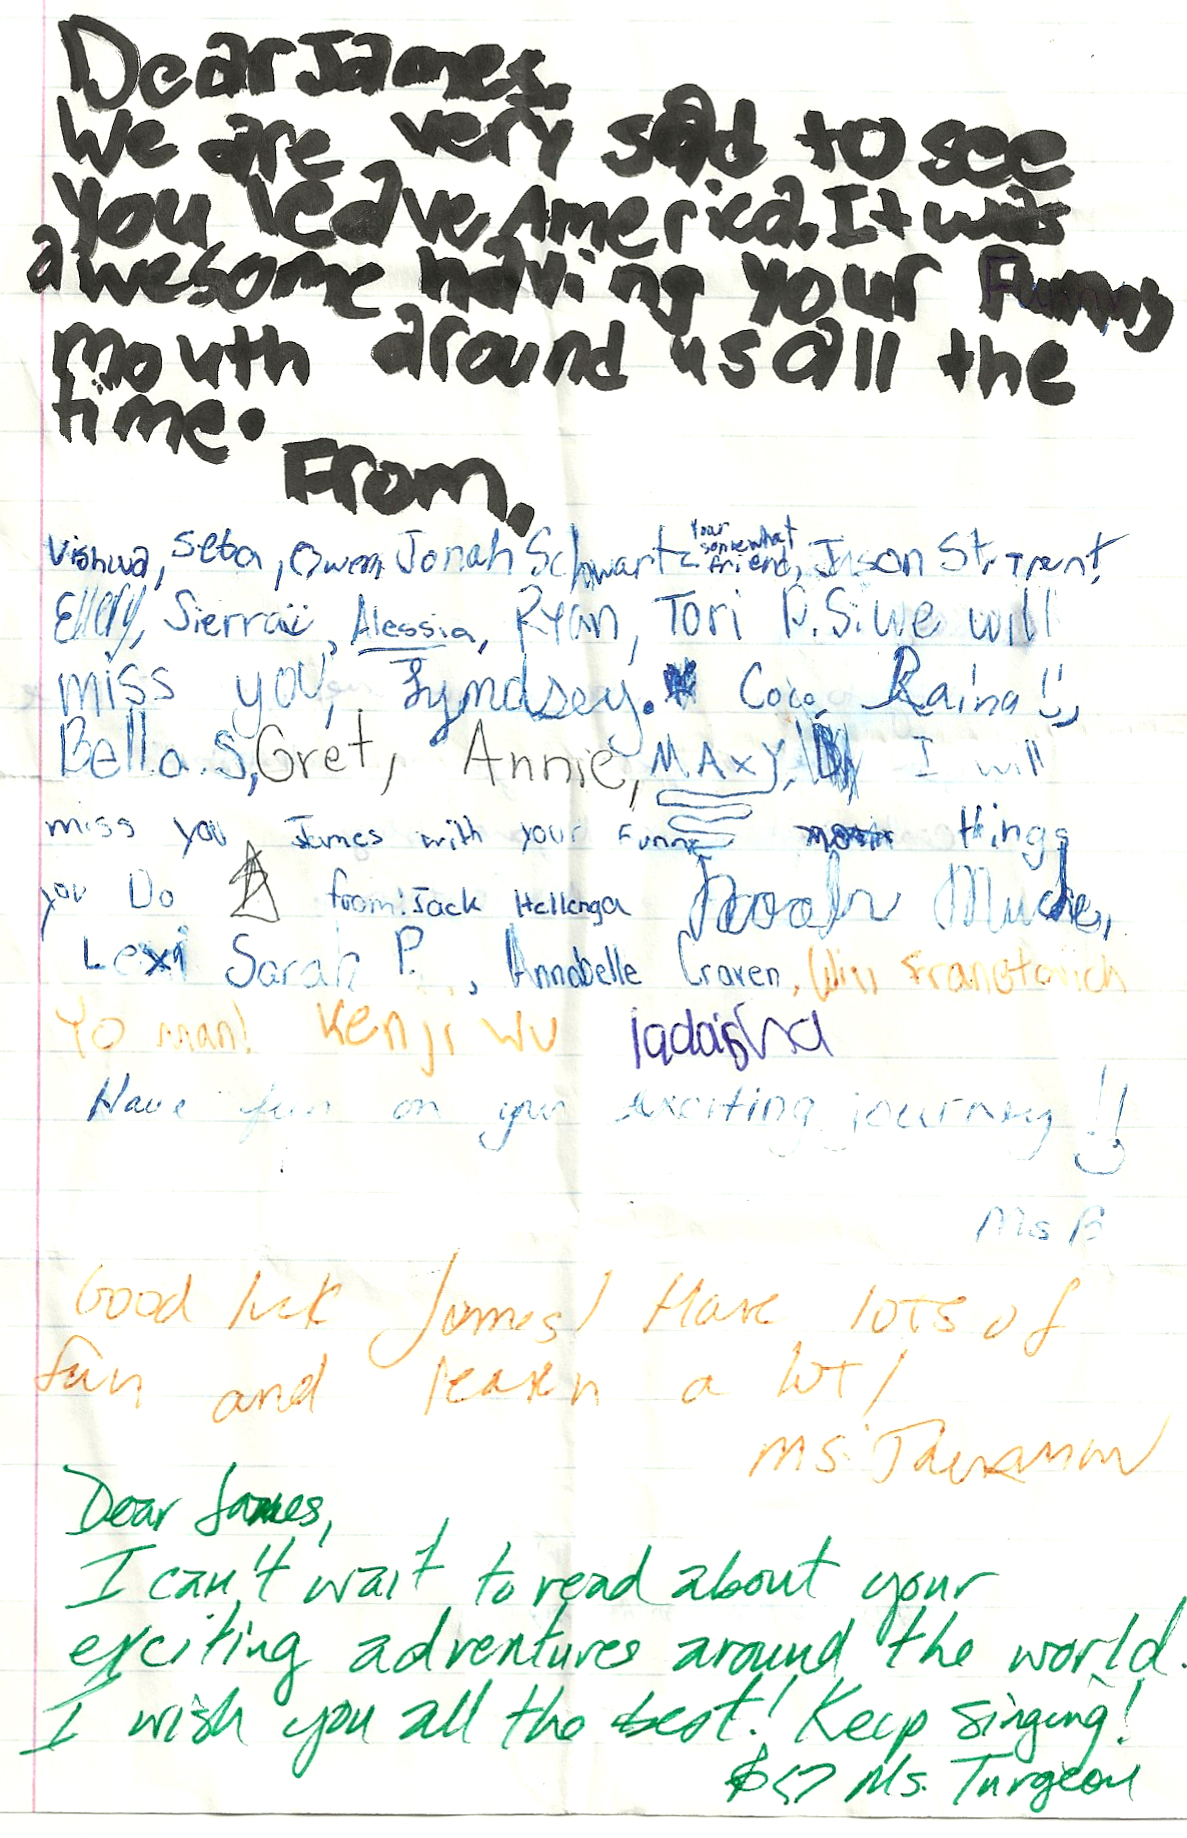 Dear James,
We are very sad to see
You leave America. It was
awesome having your Funny
mouth around us all the
time.
From,
Vishwa, Seba, Owen Jonah Schwartz Your somewhat friend, Jason St. Trent
Ellery, Sierra, Alessia, Ryan, Tori P.S. we will
miss you, Lyndsey. Coco, Raina!!,
Bella.S, Gret, Annie, MAxy, I will
miss you James with your Funny things
you Do from: Jack Hellenga Noah
Lexi Sarah P., Annabelle Craven, Will Franotovich
Yo man! Kenji Wu
Have fun on your exciting journey!!
Ms B
Good luck James! Have lots of
fun and learn a lot!
Ms.
Dear James,
I can't wait to read about your
exciting adventures around the world.
I wish you all the best! Keep singing!
Ms. Turgeon